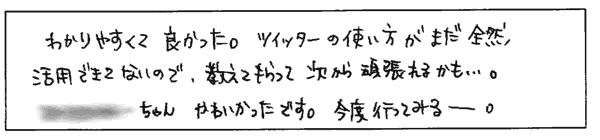 わかりやすくて 良かった。ツイッターの使い方がまだ全然、
活用できてないので、教えてもらって 次から 頑張れるかも…。
ちゃん やもいかったです。今度行ってみるー。